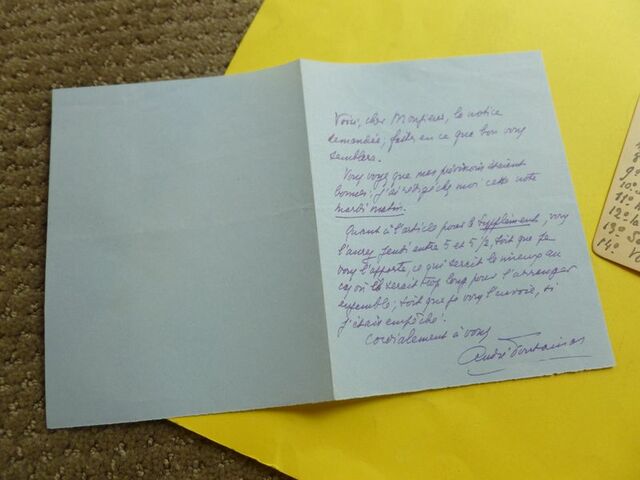 Voici, cher Monsieur, la notice
demandée; faites en ce que bon vous
semblera.
Vous voyez que mes prévisions étaient
bonnes; j'ai rédigé chez moi cette note
mardi matin.
Quant à l'article pour le Supplément, vous
l'aurez jeudi entre 5 et 5 1/2, soit que je
vous l'apporte, ce qui serait le mieux au
cas où il serait trop long pour l'arranger
ensemble; soit que je vous l'envoie, si
j'étais empêché.
Cordialement à vous
André
9º
10º
11º
12º la
13º
14º